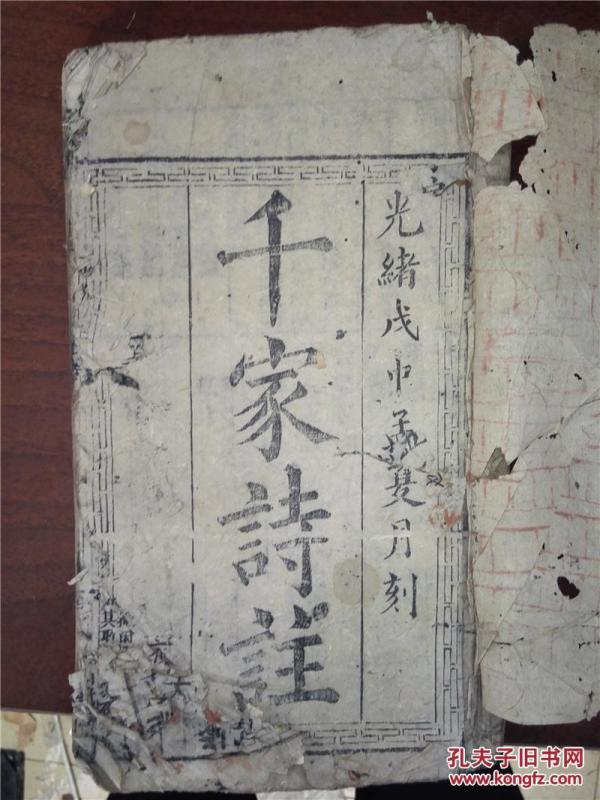 光緒戊申孟夏月刻
千家詩註
孔夫子旧书网
www.kongfz.com